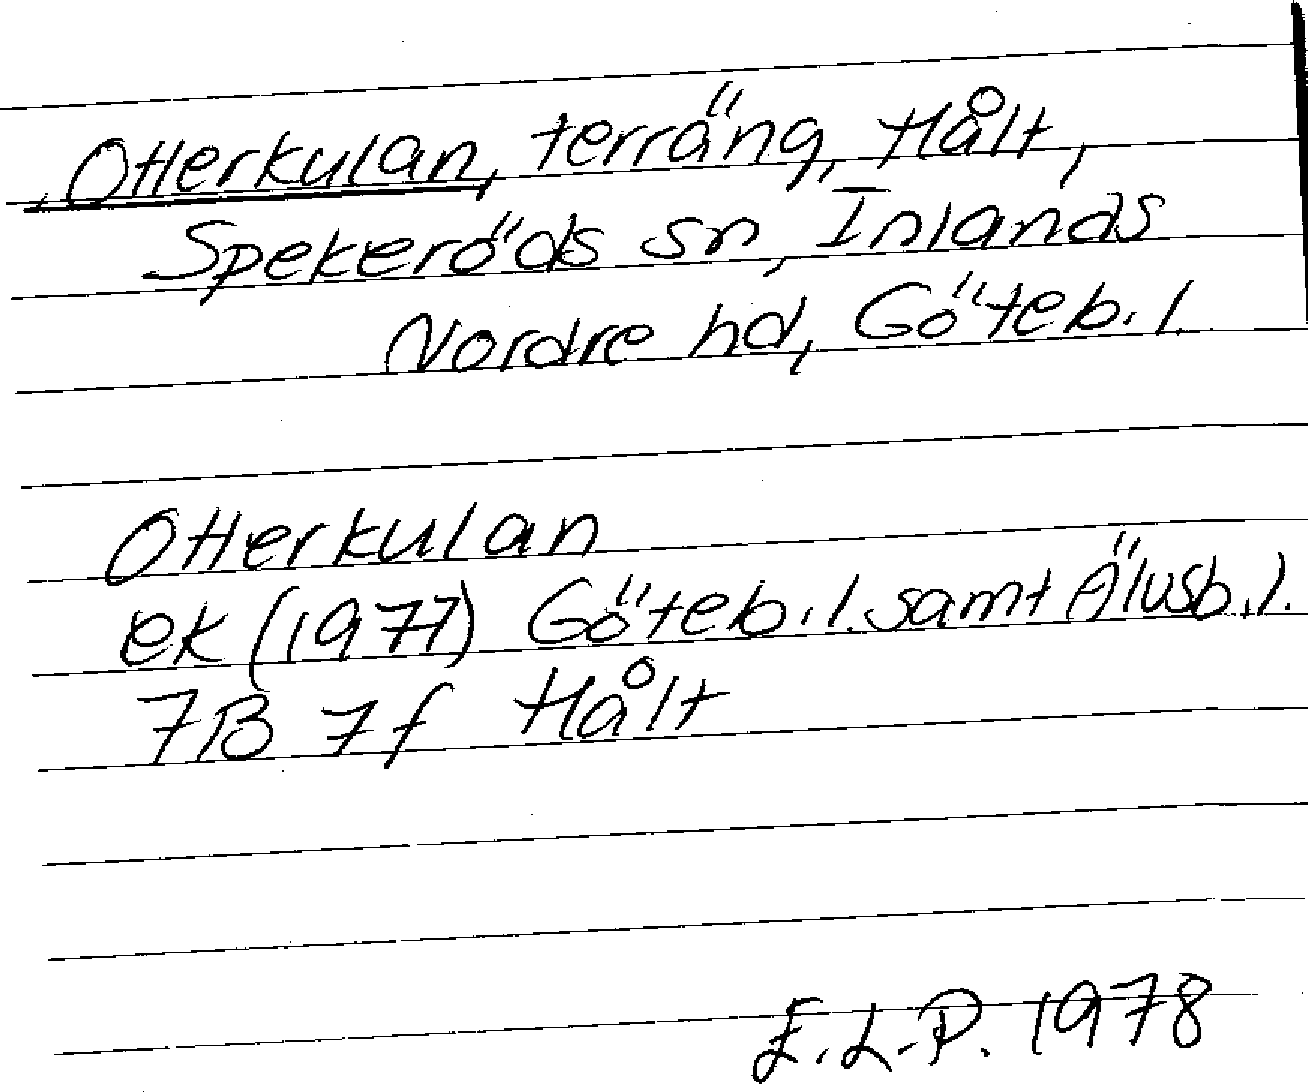 Otterkulan, terräng, Hålt,
Spekeröds sn, Inlands
Nordre hd, Göteb. l.
Otterkulan
ek (1977) Göteb. l. samt Älvsb. l.
7B 7f Hålt
E. L-P. 1978